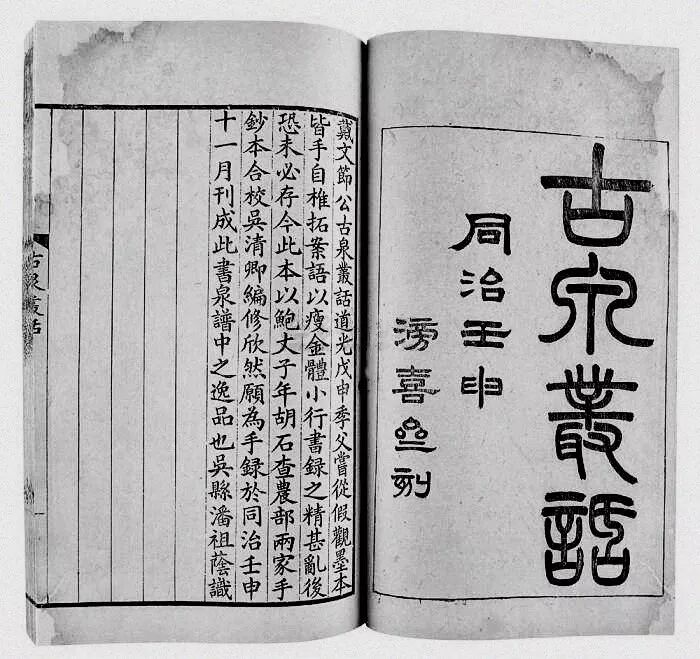 古泉叢話
同治壬申
滂喜齋刻
戴文節公古泉叢話道光戊申季父嘗從假觀墨本
皆手自椎拓案語以瘦金體小行書録之精甚亂後
恐未必存今此本以鮑丈子年胡石查農部兩家手
鈔本合校吳清卿編修欣然願為手録於同治壬申
十一月刊成此書泉譜中之逸品也吳縣潘祖蔭識
古泉叢話